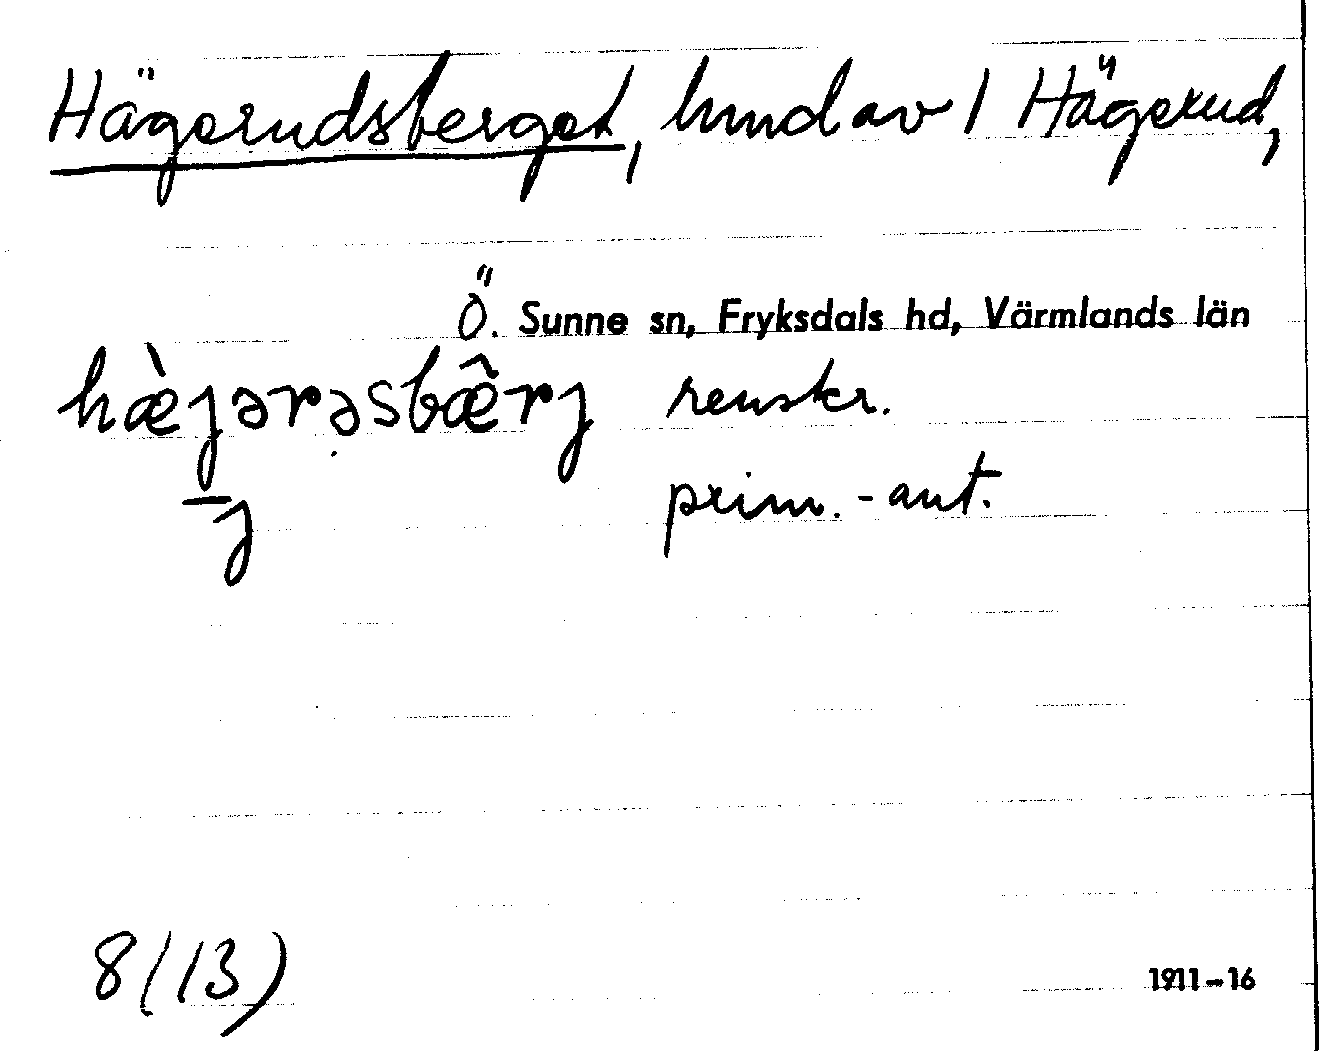 Hägerudsberget, hmd av 1 Hägerud,
Ö. Sunne sn, Fryksdals hd, Värmlands län
hæ̀jərəsbæ̂rj renskr.
j prim.-ant.
8(13)
1911-16